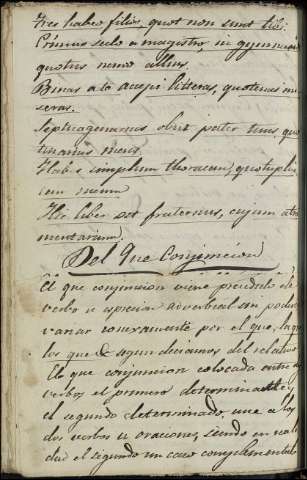 Tres habeo filios, quot non sunt tibi.
Primus sedo a magistro in gymnasio
quotus nemo alius.
Binas a te accepi litteras, quotenas mi
seras.
Septuagenarius obiit pater tuus, quo
tenarius meus.
Habes simplum thoracem, quotupli
cem nemo
Hic liber est fraternus, cujum atra
mentarium.
Del Que Conjuncion
El que conjuncion viene precedido de
verbo u especie adverbial sin poder
variar conexamente por el que, la que
lo que de segun deciamos del relativo
El que conjuncion colocada entre dos
verbos el primero determinante y
el segundo determinado, une a los
dos verbos u oraciones, siendo en reali
dad el segundo un caso complementario